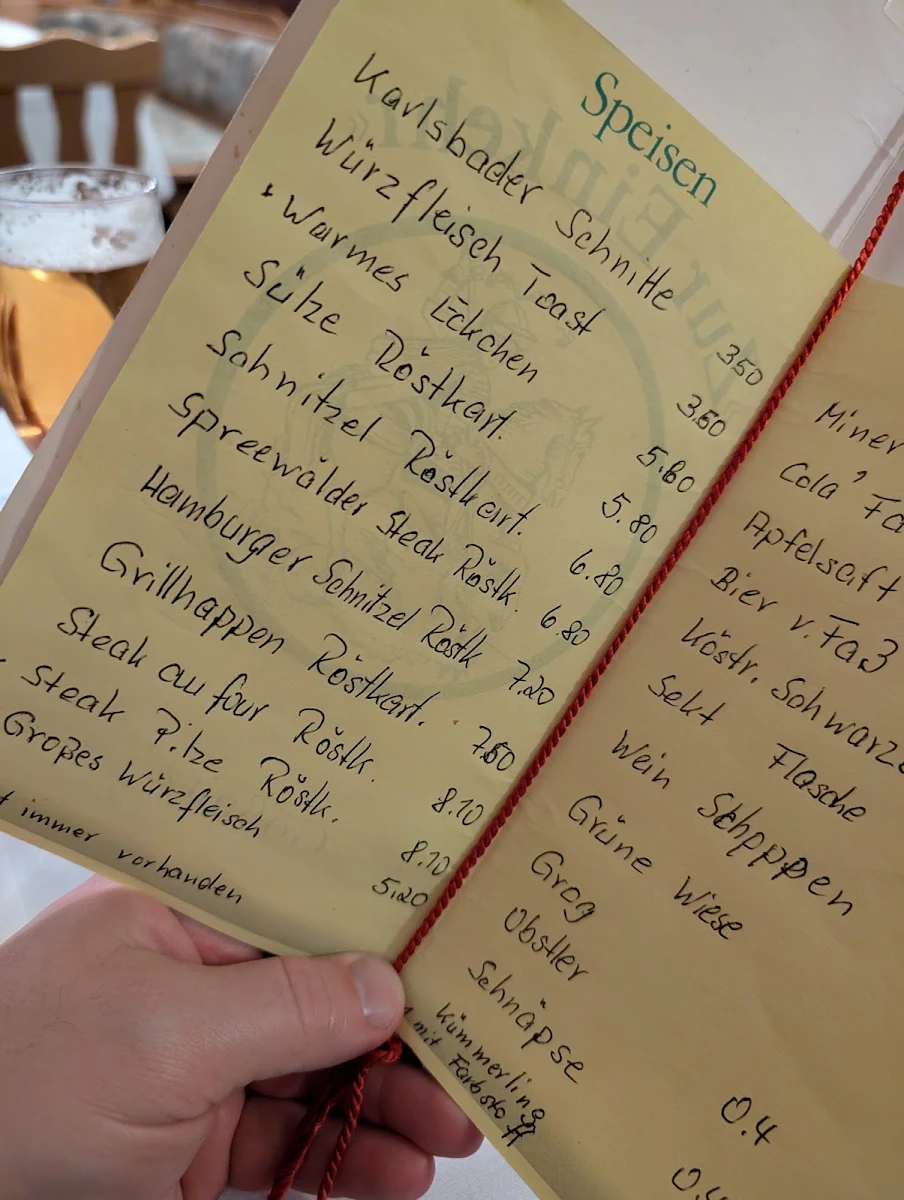 Speisen
Karlsbader Schnitte 3.50
Würzfleisch Toast 3.60
* Warmes Eckchen 5.60
Sülze Röstkart. 5.80
Schnitzel Röstkart. 6.80
Spreewälder Steak Röstk. 6.80
Hamburger Schnitzel Röstk 7.20
Grillhappen Röstkart. 7.60
Steak au four Röstk. 8.10
Steak Pilze Röstk. 8.10
Großes Würzfleisch 5.20
immer vorhanden
Miner
Cola, Fa
Apfelsaft
Bier v. Faß
Köstr. Schwarze
Sekt Flasche
Wein Schoppen
Grüne Wiese
Grog
Obstler
Schnäpse
Kümmerling
mit Farbstoff
0.4